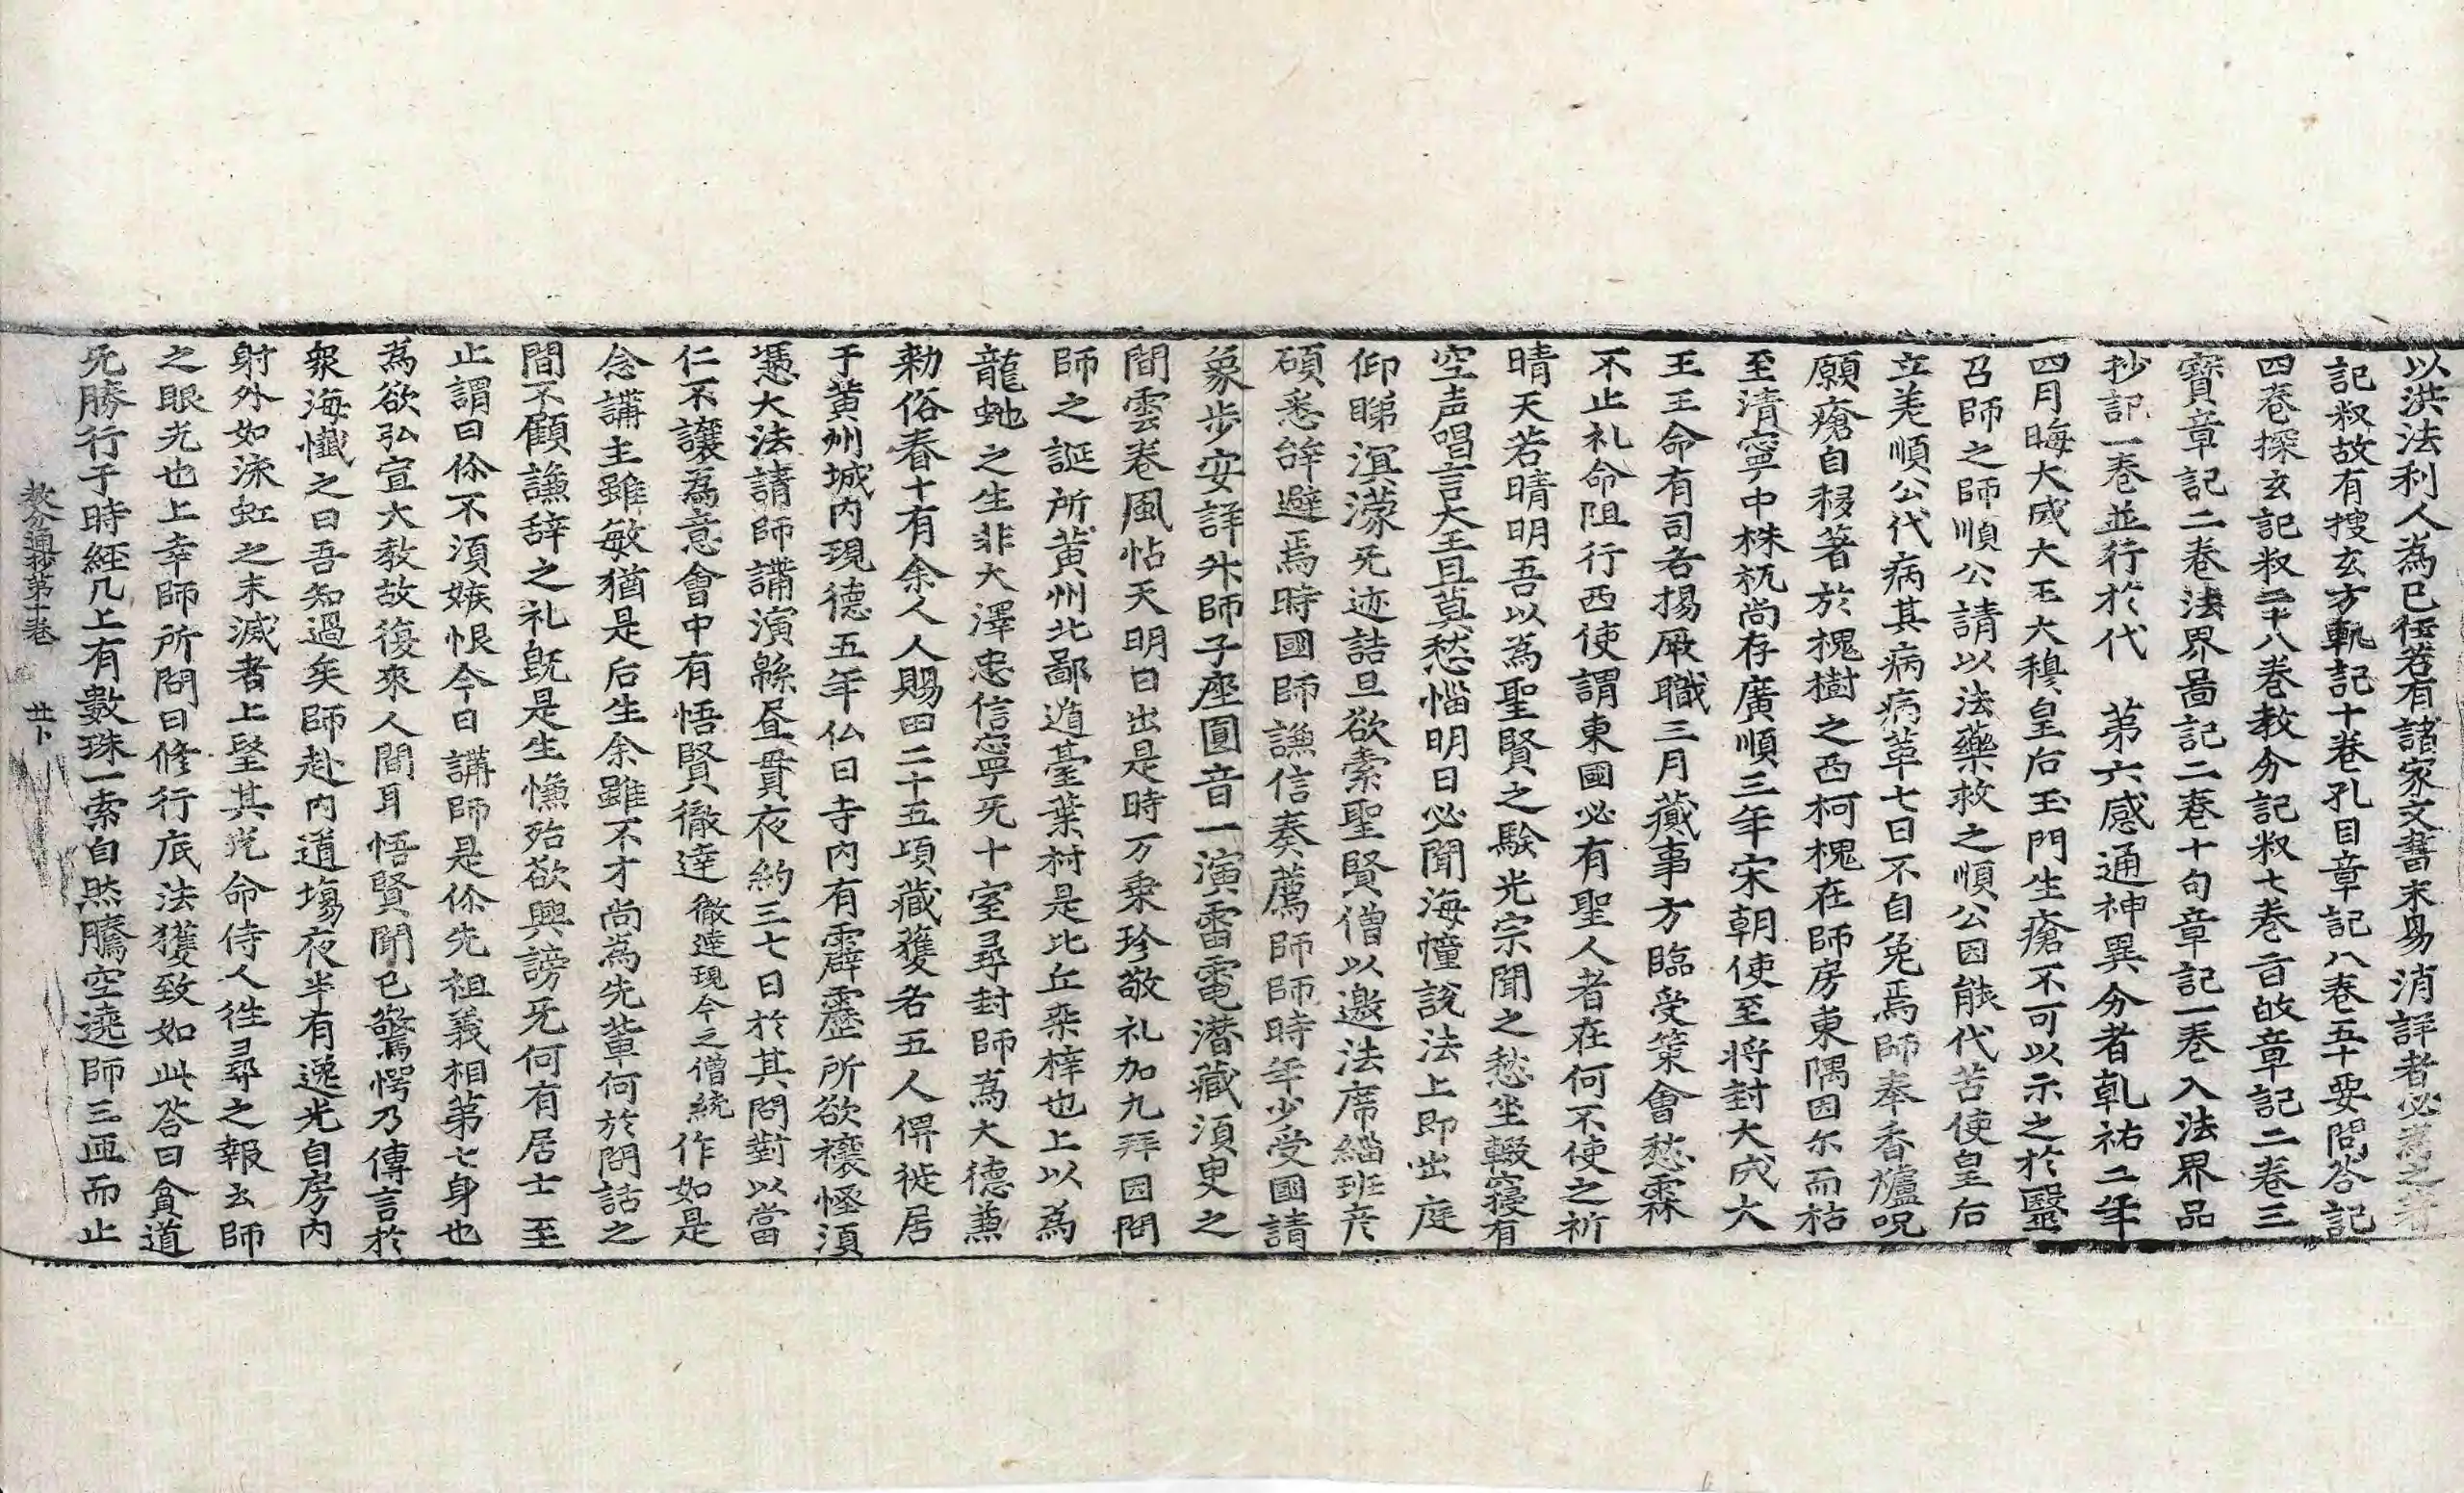 以洪法利人為已任若有諸家文書未易消詳者必為之著
記釈故有搜玄方軌記十卷孔目章記八卷五十要問答記
四卷探玄記釈二十八卷教分記釈七卷旨皈章記二卷三
寶章記二卷法界啚記二卷十句章記一卷入法界品
抄記一卷並行於代 第六感通神異分者乹祐二年
四月晦大成大王大穆皇后玉門生瘡不可以示之於醫
召師之師順公請以法藥救之順公因能代苦使皇后
立差順公代病其病病革七日不自免焉師奉香爐呪
願瘡自移著於槐樹之西柯槐在師房東隅因尓而枯
至清寧中株杌尚存廣順三年宋朝使至将封大成大
王王命有司各揚厥職三月蕆事方臨受策會愁霖
不止礼命阻行西使謂東國必有聖人者在何不使之祈
晴天若晴明吾以為聖賢之驗光宗聞之愁坐輟寢有
空声唱言大王且莫愁惱明日必聞海幢說法上即出庭
仰睇溟濛旡迹詰旦欲索聖賢僧以邀法席緇班彦
碩悉辝避焉時國師謙信奏薦師師時年少受國請
象步安詳升師子座圓音一演雷電潜藏須臾之
間雲卷風怗天明日出是時万乗珍敬礼加九拜因問
師之誕所黄州北鄙遁臺葉村是比丘桒梓也上以為
龍虵之生非大澤忠信寧旡十室尋封師為大德兼
勑俗眷十有余人人賜田二十五頃藏獲各五人俾徙居
于黄州城内現德五年仏日寺内有霹靂所欲禳怪須
憑大法請師講演緜昼貫夜約三七日於其問對以當
仁不讓為意會中有悟賢徹達徹達現今之僧統作如是
念講主雖敏猶是后生余雖不才尚為先輩何於問話之
間不顧謙辞之礼旣是生憔殆欲興謗旡何有居士至
止謂曰伱不湏嫉恨今日講師是伱先祖義相第七身也
為欲弘宣大教故復來人間耳悟賢聞已驚愕乃傳言於
衆海懺之曰吾知過矣師赴内道場夜半有逸光自房内
射外如渿虹之末滅者上望其光命侍人徃尋之報云師
之眼光也上幸師所問曰修行底法獲致如此荅曰貧道
旡勝行于時經几上有數珠一索自然騰空遶師三匝而止
教分通抄第十卷 廿卜